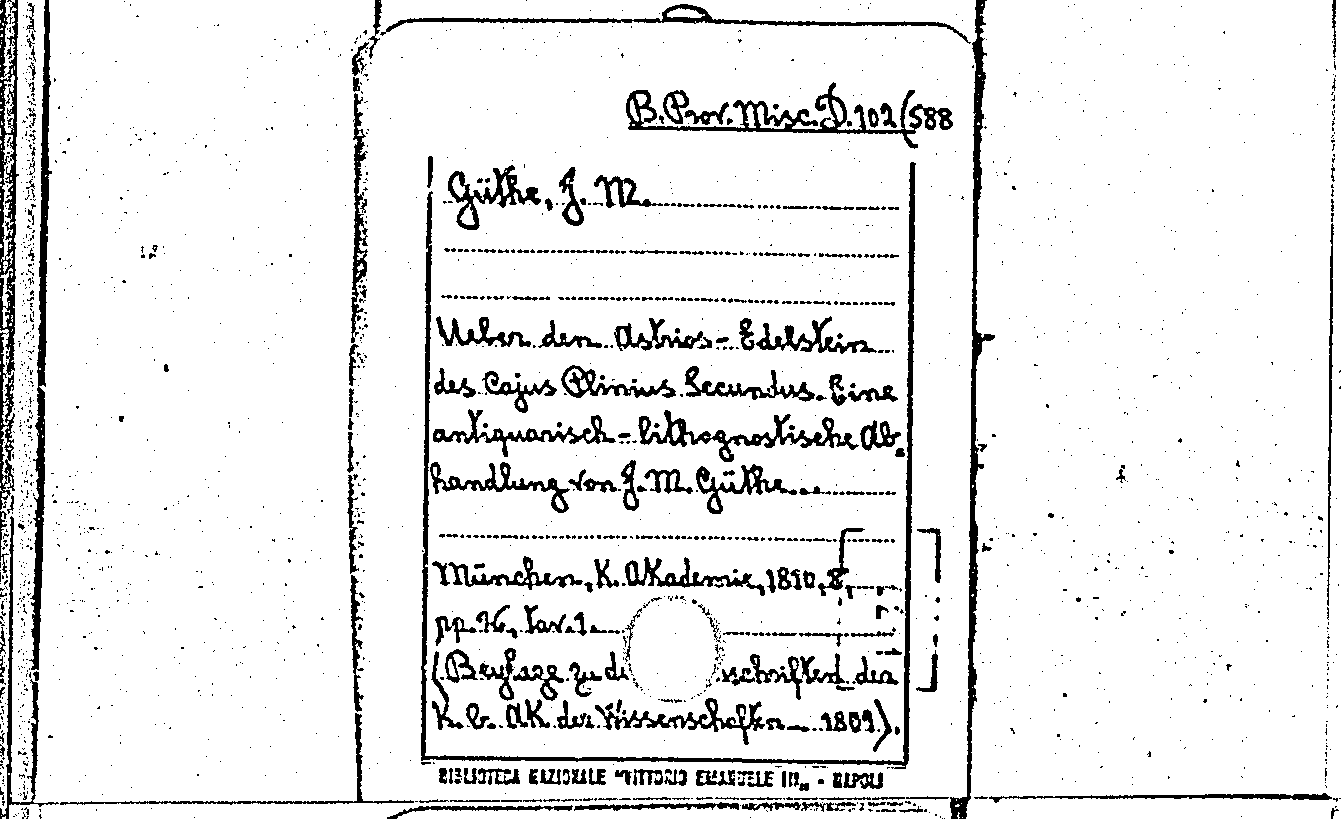 B. Prov. Misc. D. 102(588
Güthe, J. M.
Ueber den Astrios-Edelstein
des Cajus Plinius Secundus. Eine
antiquarisch-lithognostische Ab.
handlung von J. M. Güthe...
München, K. Akademie, 1810, 8,
pp. 76, tav. 1.
(Beylage zu schriften der
K. b. AK. der Wissenschaften 1809).
BIBLIOTECA NAZIONALE "VITTORIO EMANUELE III„ - NAPOLI